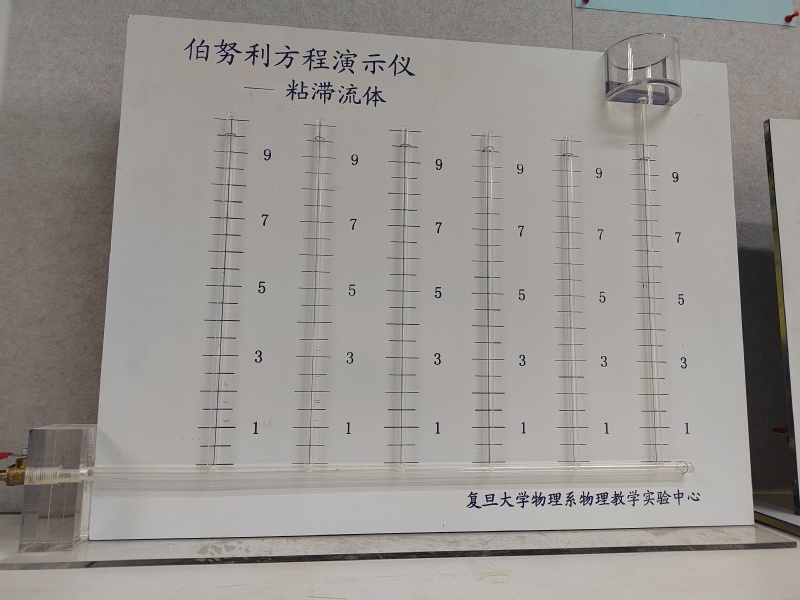 伯努利方程演示仪
— 粘滞流体
9 9 9 9 9 9
7 7 7 7 7 7
5 5 5 5 5 5
3 3 3 3 3 3
1 1 1 1 1 1
复旦大学物理系物理教学实验中心